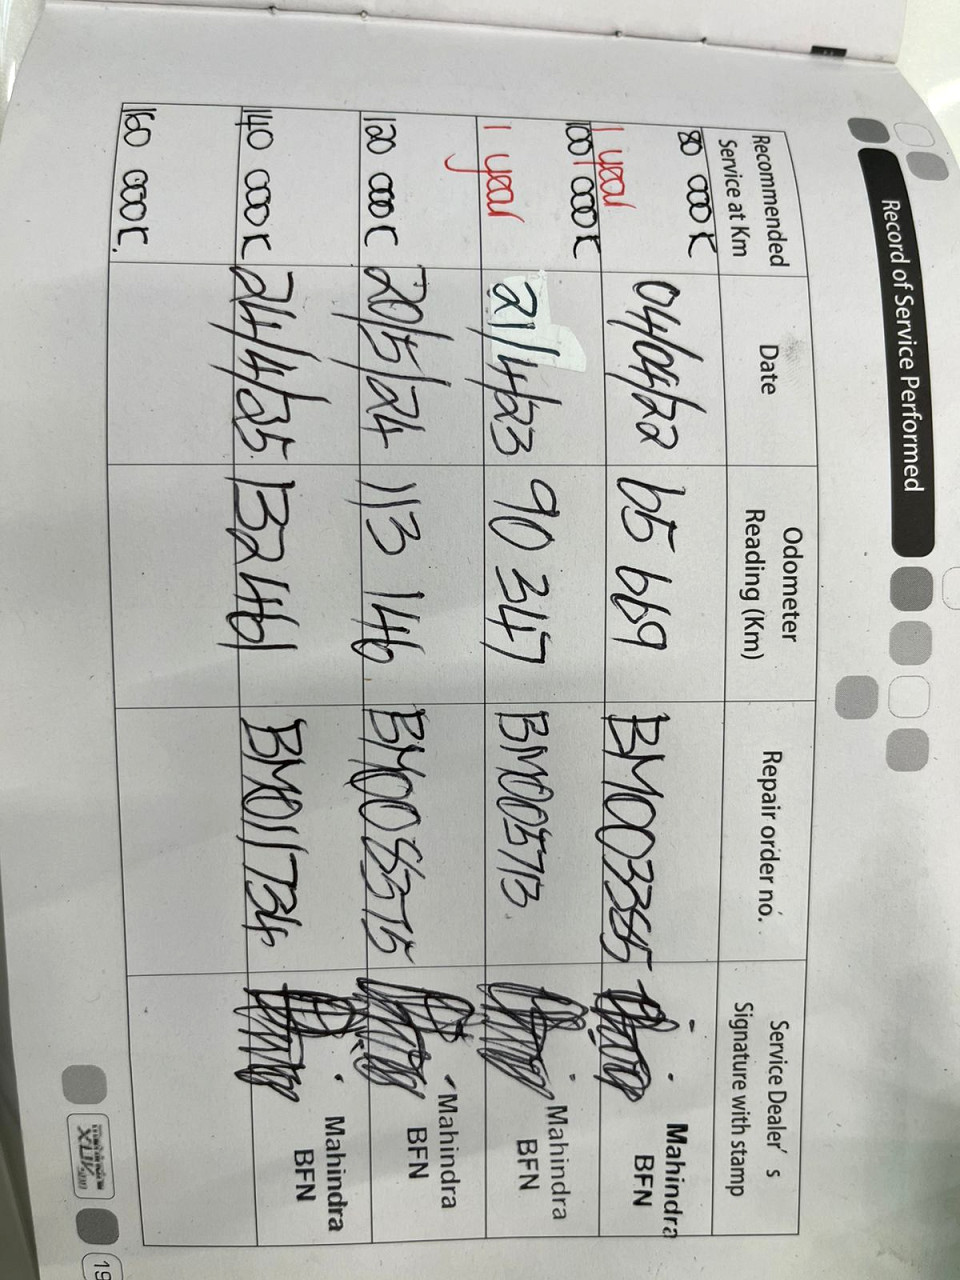 Record of Service Performed
Recommended Service at Km Date Odometer Reading (Km) Repair order no. Service Dealer's Signature with stamp
80 000K 04/04/22 65 669 BM003385 Mahindra BFN
1 year
100 000K 21/4/23 90 347 BM005713. Mahindra BFN
1 year
120 000K 20/5/24 113 146 BM008575 Mahindra BFN
140 000K 24/4/25. 132461 BM011734 Mahindra BFN
160 000K.
19